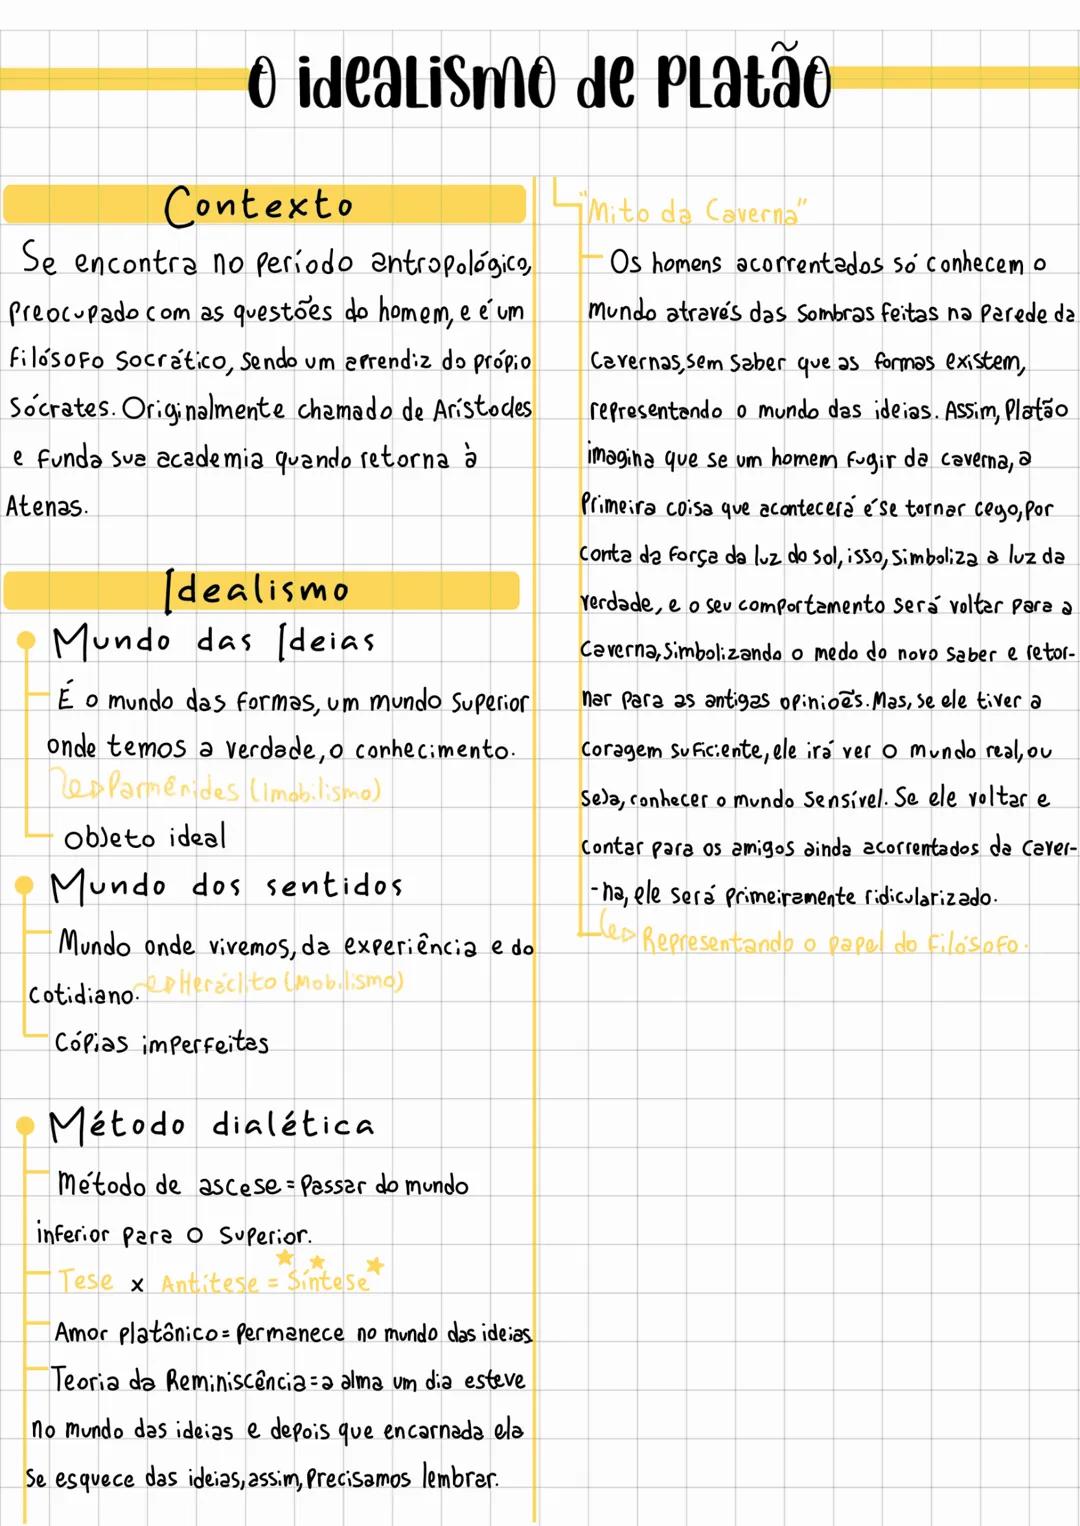 O idealismo de Platão
Contexto
Se encontra no período antropológico,
preocupado com as questões do homem, e é um
filósofo socrático, sendo um aprendiz do própio
Sócrates. Originalmente chamado de Arístocles
e funda sua academia quando retorna à
Atenas.
Idealismo
Mundo das Ideias
É o mundo das formas, um mundo superior
onde temos a verdade, o conhecimento.
Parmênides (Imobilismo)
Objeto ideal
Mundo dos sentidos
Mundo onde vivemos, da experiência e do
cotidiano.
Heráclito (Mobilismo)
Cópias imperfeitas
Método dialética
Método de ascese = Passar do mundo
inferior para o superior.
Tese x Antítese = Síntese
Amor platônico = Permanece no mundo das ideias
Teoria da Reminiscência = a alma um dia esteve
no mundo das ideias e depois que encarnada ela
se esquece das ideias, assim, precisamos lembrar.
"Mito da Caverna"
Os homens acorrentados só conhecem o
mundo através das sombras feitas na parede da
cavernas, sem saber que as formas existem,
representando o mundo das ideias. Assim, Platão
imagina que se um homem fugir da caverna, a
primeira coisa que acontecerá é se tornar cego, por
conta da força da luz do sol, isso, simboliza a luz da
verdade, e o seu comportamento será voltar para a
caverna, simbolizando o medo do novo saber e retor-
nar para as antigas opiniões. Mas, se ele tiver a
coragem suficiente, ele irá ver o mundo real, ou
seja, conhecer o mundo sensível. Se ele voltar e
contar para os amigos ainda acorrentados da caver-
-na, ele será primeiramente ridicularizado.
Representando o papel do filósofo.